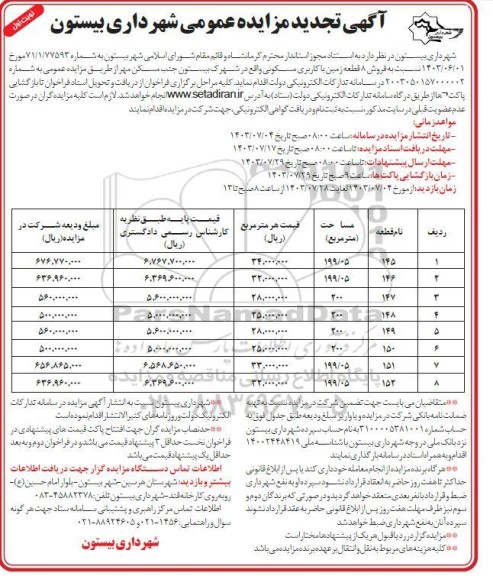 نوبت اول
آگهی تجدید مزایده عمومی شهرداری بیستون
شهرداری بیستون در نظر دارد به استناد مجوز استاندار محترم کرمانشاه و قائم مقام شورای اسلامی شهر بیستون به شماره ۷۱/۱/۷۷۵۹۳ مورخ
۱۴۰۳/۰۶/۰۱ نسبت به فروش ۸ قطعه زمین با کاربری مسکونی واقع در شهرک بیستون جنب مسکن مهر از طریق مزایده عمومی به شماره
۲۰۰۳۰۵۰۱۵۷۰۰۰۰۰۲ در سامانه تدارکات الکترونیکی دولت اقدام نماید. کلیه مراحل برگزاری فراخوان از دریافت و تحویل اسناد فراخوان تا بازگشایی
پاکت‌ها از طریق درگاه سامانه تدارکات الکترونیکی دولت (ستاد) به آدرس www.setadiran.ir انجام خواهد شد. لازم است کلیه مزایده گران در صورت
عدم عضویت قبلی در سایت مذکور، نسبت به ثبت نام و دریافت گواهی الکترونیکی، جهت شرکت در مزایده اقدام نمایند
مواعد زمانی:
-تاریخ انتشار مزایده در سامانه: ساعت ۰۸:۰۰ صبح تاریخ ۱۴۰۳/۰۷/۰۴
-مهلت دریافت اسناد مزایده: تا ساعت ۰۸:۰۰ صبح تاریخ ۱۴۰۳/۰۷/۱۷
-مهلت ارسال پیشنهادات: تا ساعت ۰۸:۰۰ صبح تاریخ ۱۴۰۳/۰۷/۲۹
-زمان بازگشایی پاکت‌ها: ساعت ۹ صبح تاریخ ۱۴۰۳/۰۷/۲۹
زمان بازدید: از مورخ ۱۴۰۳/۰۷/۰۴ لغایت ۱۴۰۳/۰۷/۲۸ از ساعت ۸ صبح تا ۱۳
ردیف نام قطعه مساحت (مترمربع) قیمت هر مترمربع (ریال) قیمت پایه طبق نظریه کارشناس رسمی دادگستری (ریال) مبلغ ودیعه شرکت در مزایده (ریال)
۱ ۱۴۵ ۱۹۹/۰۵ ۳۴.۰۰۰.۰۰۰ ۶.۷۶۷.۷۰۰.۰۰۰ ۶۷۶.۷۷۰.۰۰۰
۲ ۱۴۶ ۱۹۹/۰۵ ۳۲.۰۰۰.۰۰۰ ۶.۳۶۹.۶۰۰.۰۰۰ ۶۳۶.۹۶۰.۰۰۰
۳ ۱۴۷ ۲۰۰ ۲۸.۰۰۰.۰۰۰ ۵.۶۰۰.۰۰۰.۰۰۰ ۵۶۰.۰۰۰.۰۰۰
۴ ۱۴۸ ۲۰۰ ۲۵.۰۰۰.۰۰۰ ۵.۰۰۰.۰۰۰.۰۰۰ ۵۰۰.۰۰۰.۰۰۰
۵ ۱۴۹ ۲۰۰ ۲۸.۰۰۰.۰۰۰ ۵.۶۰۰.۰۰۰.۰۰۰ ۵۶۰.۰۰۰.۰۰۰
۶ ۱۵۰ ۲۰۰ ۲۵.۰۰۰.۰۰۰ ۵.۰۰۰.۰۰۰.۰۰۰ ۵۰۰.۰۰۰.۰۰۰
۷ ۱۵۱ ۱۹۹/۰۵ ۳۳.۰۰۰.۰۰۰ ۶.۵۶۸.۶۵۰.۰۰۰ ۶۵۶.۸۶۵.۰۰۰
۸ ۱۵۲ ۱۹۹/۰۵ ۳۲.۰۰۰.۰۰۰ ۶.۳۶۹.۶۰۰.۰۰۰ ۶۳۶.۹۶۰.۰۰۰
متقاضیان می بایست جهت تضمین شرکت در مزایده نسبت به تهیه
ضمانت نامه بانکی شرکت در مزایده و یا واریز مبلغ ودیعه طبق جدول فوق به
حساب شماره ۳۱۰۰۰۰۵۳۸۱۰۰۱ به نام حساب سپرده شهرداری بیستون
نزد بانک ملی در وجه شهرداری بیستون با شناسه ملی ۱۴۰۰۲۴۴۸۴۱۹
اقدام و به همراه اسناد در سامانه بارگذاری نمایند
هر گاه برنده مزایده از انجام معامله خودداری کند یا پس از ابلاغ قانونی
حداکثر تا هفت روز حاضر به انعقاد قرارداد نشود سپرده او به نفع شهرداری
ضبط و قرارداد با نفر بعدی منعقد خواهد گردید و در صورتی که برندگان دوم و
سوم نیز ظرف مهلت هفت روز پس از ابلاغ قانونی حاضر به عقد قرارداد نشوند
سپرده آنان به نفع شهرداری ضبط خواهد شد
مزایده گزار در رد یا قبول هر یک از پیشنهادها مختار است
کلیه هزینه های مربوط به نقل و انتقال بر عهده برنده مزایده می باشد
شهرداری بیستون نسبت به انتشار آگهی مزایده در سامانه تدارکات
الکترونیک دولت و روزنامه های کثیرالانتشار اقدام نموده است
حد نصاب مزایده گران جهت افتتاح پاکت قیمت های پیشنهادی در
فراخوان نخست حداقل ۳ پیشنهاد قیمت می باشد و در فراخوان دوم و به بعد
حداقل یک پیشنهاد قیمت می باشد
اطلاعات تماس دستگاه مزایده گزار جهت دریافت اطلاعات
بیشتر و بازدید: شهرستان هرسین-شهر بیستون-بلوار امام حسین (ع)-
روبه روی کارخانه قند-شهرداری بیستون تلفن: ۴۵۸۸۲۳۷۸-۰۸۳
اطلاعات تماس مرکز راهبری و پشتیبانی سامانه ستاد جهت هر گونه
سوال و راهنمایی: ۱۴۵۶-۰۲۱ و ۸۸۹۲۴۶۰۵-۰۲۱
شهرداری بیستون